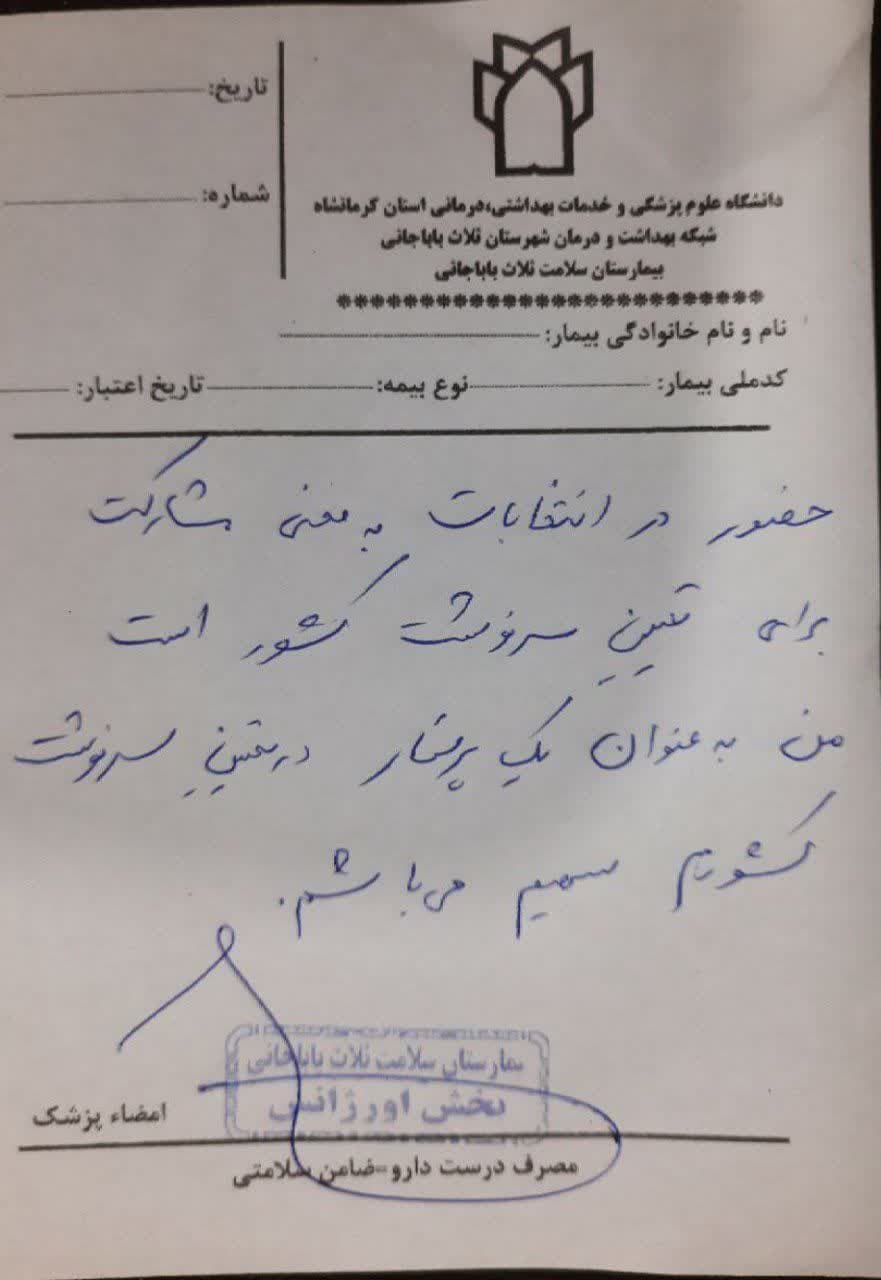 تاریخ:
شماره:
دانشگاه علوم پزشکی و خدمات بهداشتی،درمانی استان کرمانشاه
شبکه بهداشت و درمان شهرستان ثلاث باباجانی
بیمارستان سلامت ثلاث باباجانی
**************************
نام و نام خانوادگی بیمار:
کدملی بیمار: نوع بیمه: تاریخ اعتبار:
حضور در انتخابات به معنی مشارکت
برای تعیین سرنوشت کشور است
من به عنوان یک پرستار در تعیین سرنوشت
کشورم سهیم می باشم.
بیمارستان سلامت ثلاث باباجانی
بخش اورژانس
امضاء پزشک
مصرف درست دارو=ضامن سلامتی